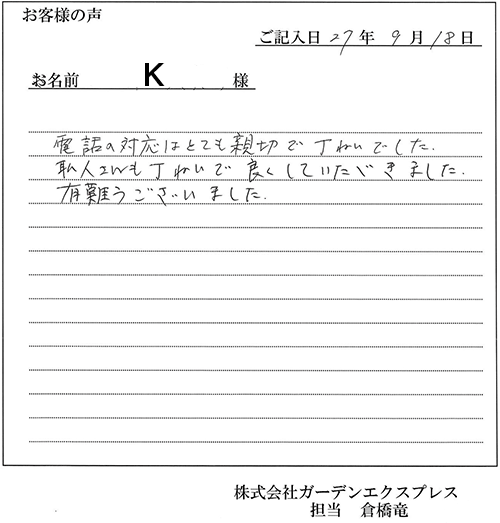 お客様の声
ご記入日 27年 9月 18日
お名前 K 様
電話の対応はとても親切で丁ねいでした.
職人さんも丁ねいで良くしていただきました.
有難うございました.
株式会社ガーデンエクスプレス
担当 倉橋竜